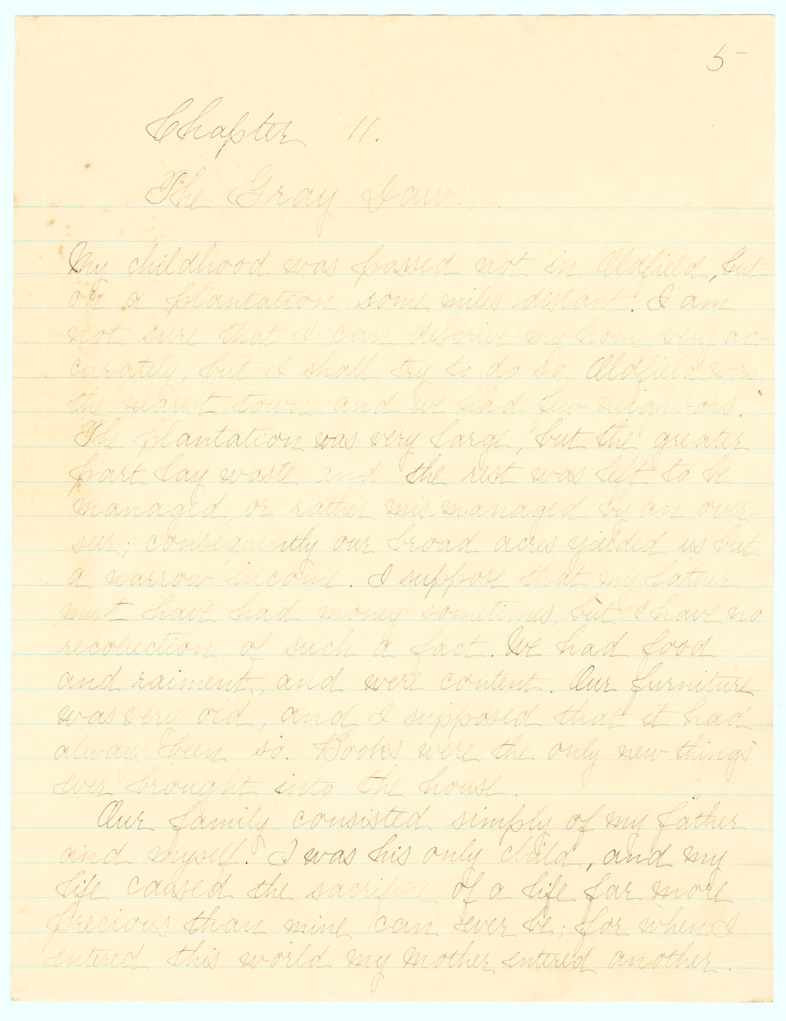 5
Chapter 11.
The Gray Dawn.
My childhood was passed not in Oldfield, but
on a plantation some miles distant. I am
not sure that I can describe my home very ac-
curately, but I shall try to do so. Oldfield was
the nearest town, and we had few neighbors.
The plantation was very large, but the greater
part lay waste and the rest was left to be
managed, or rather mis managed by an over-
seer; consequently our broad acres yielded us but
a narrow income. I suppose that my father
must have had money sometimes, but I have no
recollection of such a fact. We had food
and raiment, and were content. Our furniture
was very old, and I supposed that it had
always been so. Books were the only new things
ever brought into the house.
Our family consisted simply of my father
and myself. I was his only child, and my
life caused the sacrifice of a life far more
precious than mine can ever be; for when I
entered this world my mother entered another.